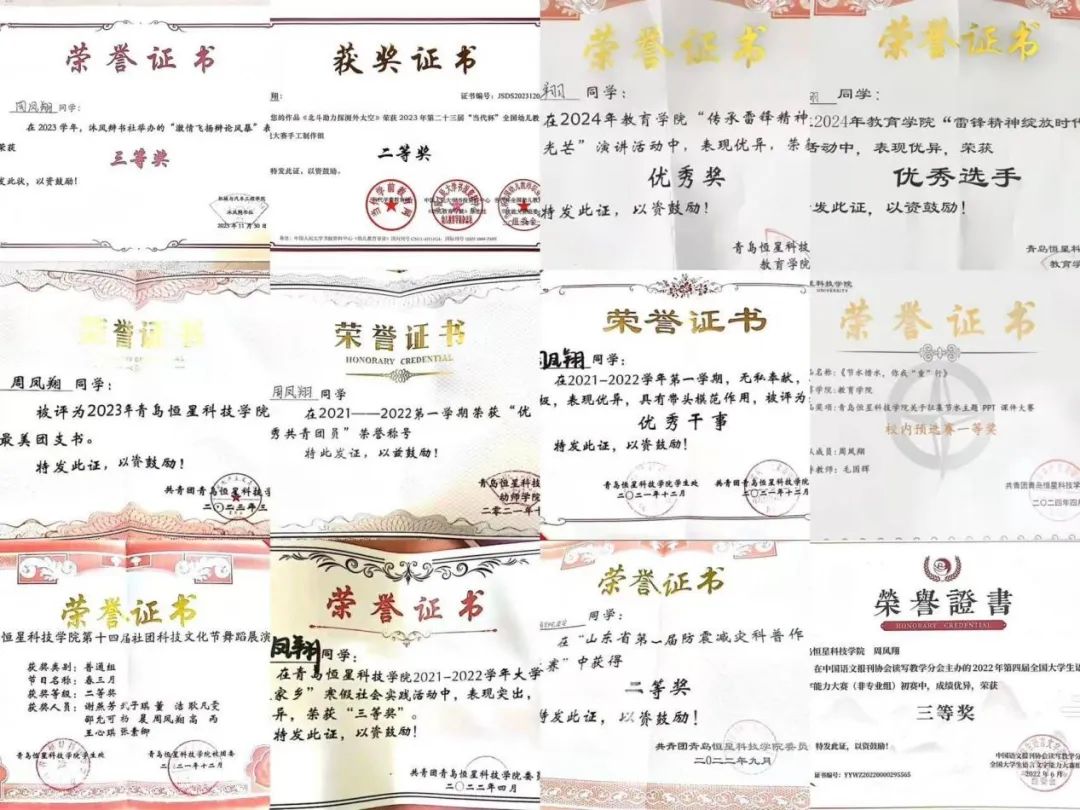 荣誉证书
周凤翔 同学：
在 2023 学年，沐风辩书社举办的“激情飞扬辩论风暴”表
荣获
三等奖
发此状，以资鼓励！
机械与汽车工程学院
沐风辩书社
2023 年 11 月 30 日
获奖证书
翔：
证书编号：JSDS2023120
您的作品《北斗助力探测外太空》荣获 2023 年第二十三届“当代杯”全国幼儿教
大赛手工制作组
二等奖
特发此证，以资鼓励。
荣誉证书
翔 同学：
在2024年教育学院“传承雷锋精神
光芒”演讲活动中，表现优异，荣
优秀奖
特发此证，以资鼓励！
青岛恒星科技
教育学院
荣誉证书
翔 同学：
2024年教育学院“雷锋精神绽放时代
活动中，表现优异，荣获
优秀选手
发此证，以资鼓励！
青岛恒星科
教育学
荣誉证书
周凤翔 同学：
被评为2023年青岛恒星科技学院
最美团支书。
特发此证，以资鼓励！
共青团青岛恒星科技学
二〇二三年三
荣誉证书
HONORARY CREDENTIAL
周凤翔 同学
在2021——2022第一学期荣获“优
秀共青团员”荣誉称号
特此发证，以兹鼓励！
青岛恒星科技
幼师学院
二零二一年十
荣誉证书
周凤翔 同学：
在2021-2022学年第一学期，无私奉献，
极，表现优异，具有带头模范作用，被评为
优秀干事
特发此证，以资鼓励！
青岛恒星科技学院学生处
二〇二一年十二月
共青团青岛恒星科技学院
二〇二一年十二月
科技学院
UNIVERSITY
荣誉证书
品名称：《节水惜水，你我“童”行》
学院：教育学院
奖项：青岛恒星科技学院关于征集节水主题 PPT 课件大赛
校内预选赛一等奖
队成员：周凤翔
导教师：毛国辉
共青团青岛恒星科技学
二〇二四年四月
荣誉证书
恒星科技学院第十四届社团科技文化节舞蹈展演
获奖类别：普通组
节目名称：春三月
获奖等级：二等奖
获奖人员：谢燕芳 子琪 董 洁 耿凡雯
邵允可 杨 晨 周凤翔 高 丙
王心琪 张素卿
青岛恒星科技学院学生处
青岛恒星科技学院校团委
二〇二一年十二月
荣誉证书
凤翔 同学：
在青岛恒星科技学院2021-2022学年大学
家乡”寒假社会实践活动中，表现突出，
异，荣获“三等奖”。
特发此证，以资鼓励！
共青团青岛恒星科技学院
二〇二二年四月
荣誉证书
同学：
在“山东省第一届防震减灾科普作
案”中获得
二等奖
特发此证，以资鼓励！
共青团青岛恒星科技学院委员
二〇二二年九月
榮譽證書
HONORARY CREDENTIAL
恒星科技学院 周凤翔
在中国语文报刊协会读写教学分会主办的2022年第四届全国大学生语
字能力大赛（非专业组）初赛中，成绩优异，荣获
三等奖
特发此证，以资鼓励！
中国语文报刊协会读写教学分
全国大学生语言文字能力大赛组
2022 年 6 月
证书编号：YYWZ20220000295565